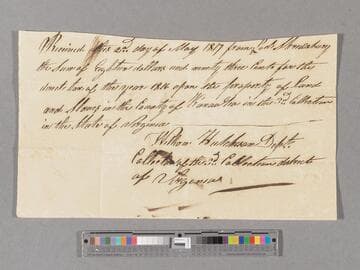 Received this 22d day of May 1817 from
the Sum of Eighteen dollars and ninety three Cents for the
direct tax of the year 1816 upon the property of Land
and Slaves in the County of in the Collection
in the State of Virginia
William Hutcheson Depty.
Collector of the Collection district
of Virginia